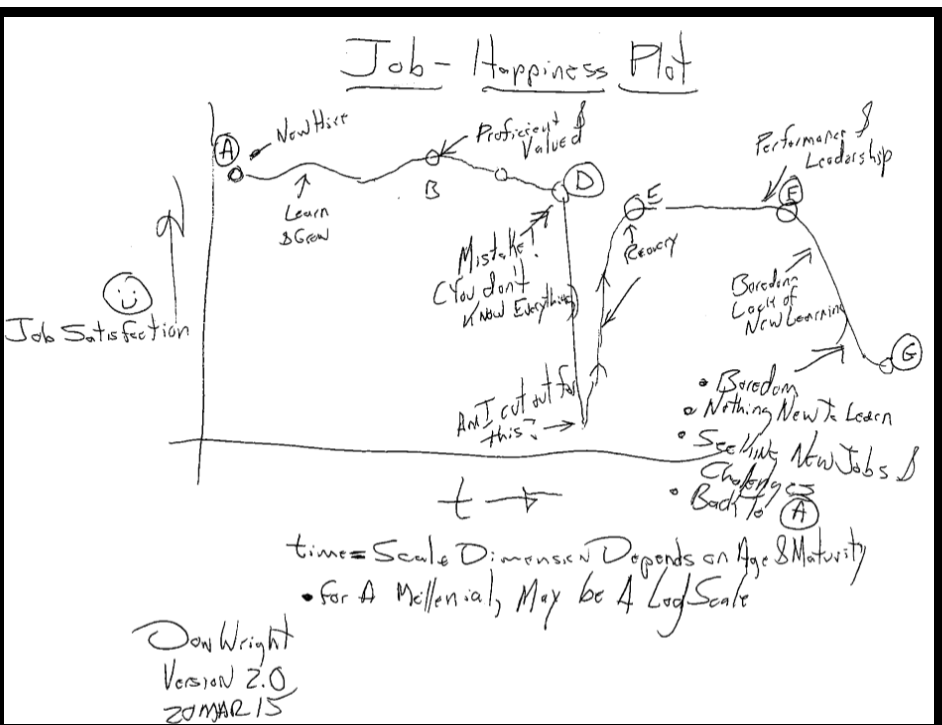 Job - Happiness Plot
A
New Hire
Learn
& Grow
B
Proficient &
Valued
D
Mistake!
(You don't
Know Everything)
Am I cut out for
this?
E
Recovery
Performance &
Leadership
F
Boredom
Lack of
New Learning
G
• Boredom
• Nothing New To Learn
• Seeking New Jobs &
Challenges
• Back To A
Job Satisfaction
t
time = Scale Dimension Depends on Age & Maturity
• For A Millenial, May be A Log Scale
Don Wright
Version 2.0
20 MAR 15